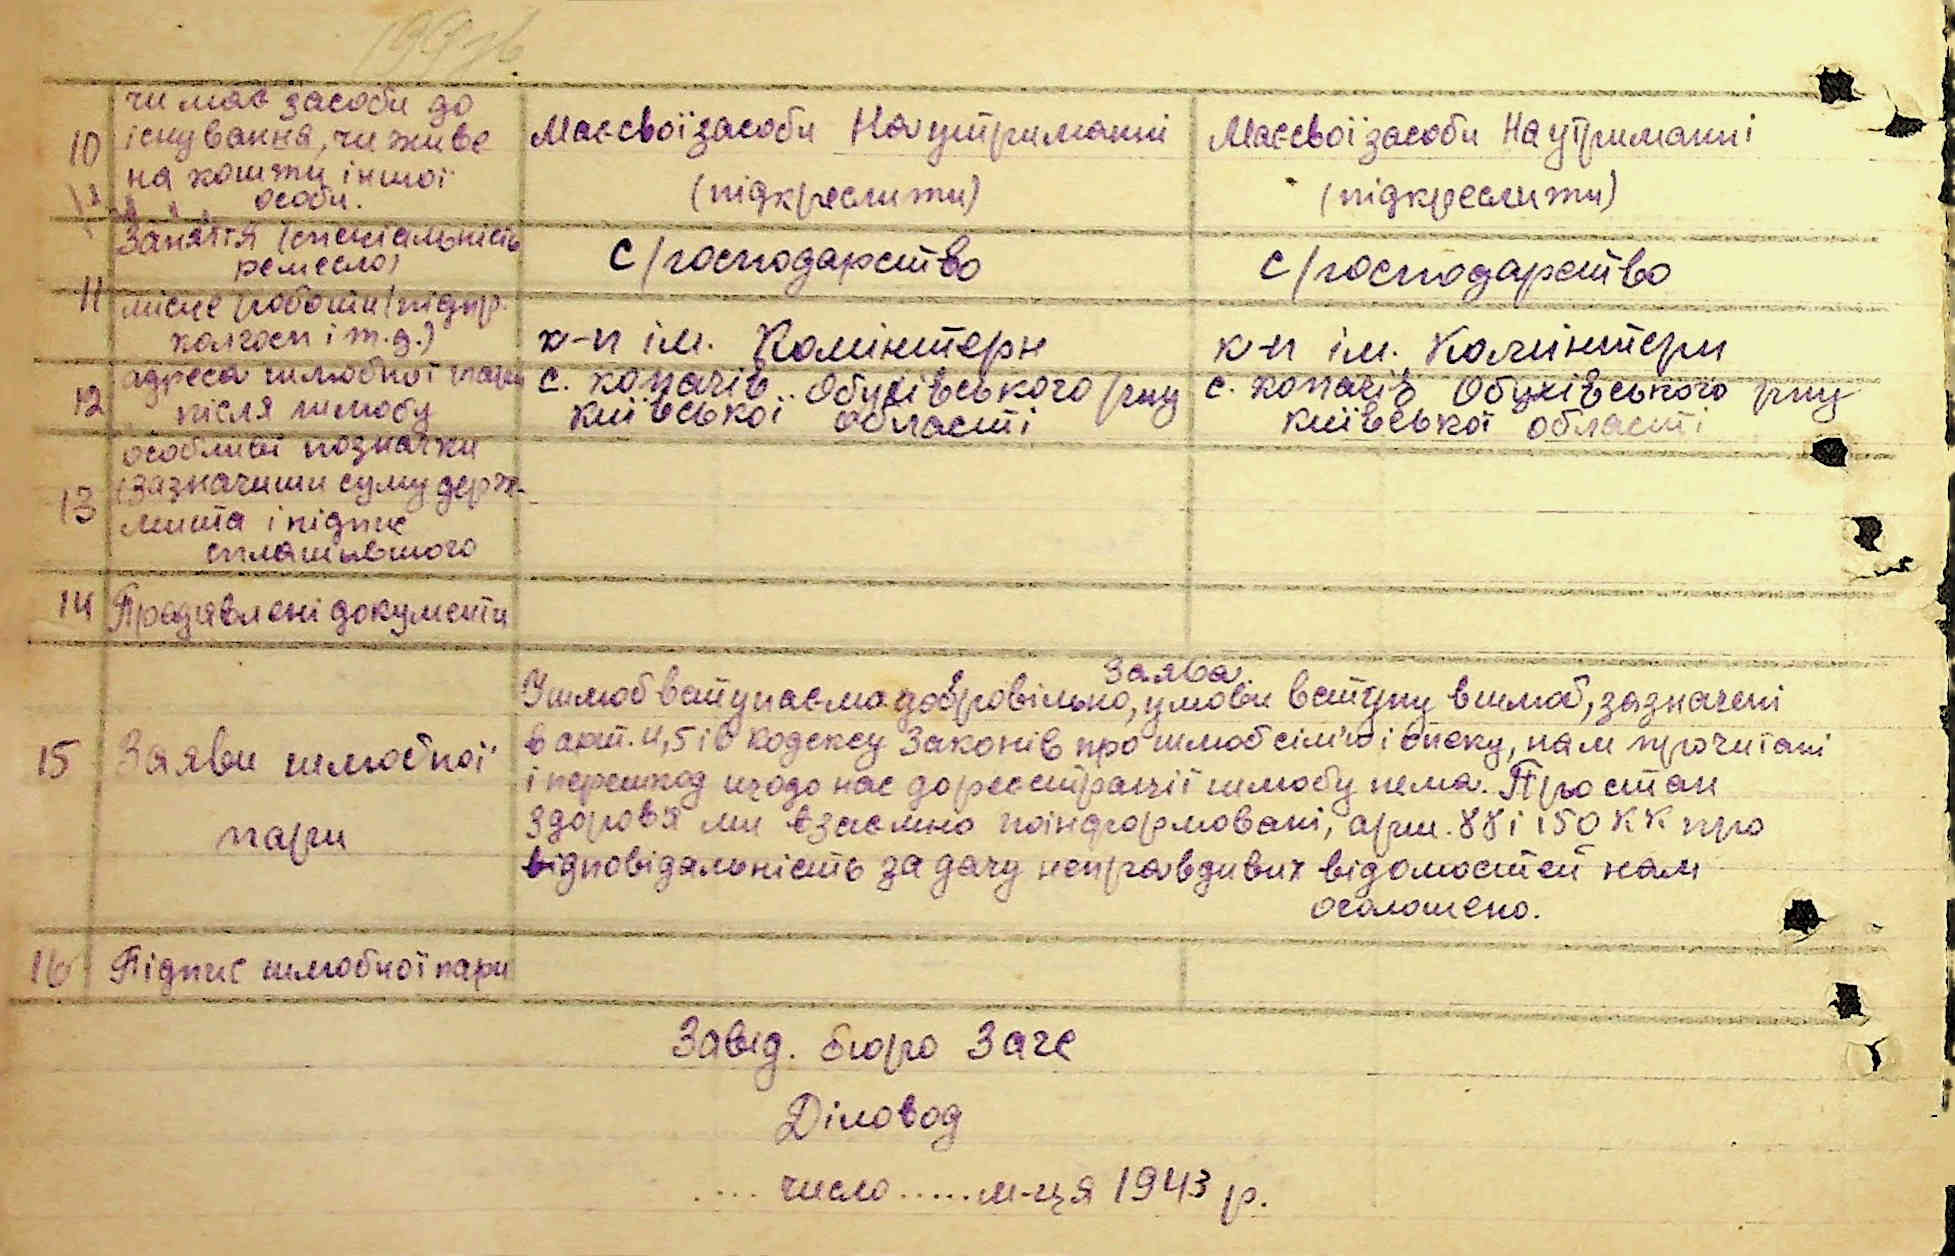 10
чи має засоби до
існування, чи живе
на кошти іншої
особи.
Має свої засоби На утриманні
(підкреслити)
Має свої засоби На утриманні
(підкреслити)
11
Заняття (спеціальність
ремесло)
С/господарство
С/господарство
місце роботи (підпр.
колгосп і т.д.)
к-п ім. Комінтерн
к-п ім. Комінтерн
12
адреса шлюбної пари
після шлюбу
с. Копачів Обухівського р-ну
Київської області
с. Копачів Обухівського р-ну
Київської області
13
особливі позначки
(зазначити суму держ-
мита і підпис
сплатившого
14
Предявлені документи
15
Заяви шлюбної
пари
Заява
У шлюб вступаємо добровільно, умови вступу в шлюб, зазначені
в арт. 4, 5 і 6 кодексу Законів про шлюб сім'ю і опеку, нам прочитані
і перешкод щодо нас до реєстрації шлюбу нема. Про стан
здоров'я ми взаємно поінформовані, арт. 88 і 150 КК про
відповідальність за дачу неправдивих відомостей нам
оголошено.
16
Підпис шлюбної пари
Завід. бюро Загс
Діловод
.... число ..... м-ця 1943 р.